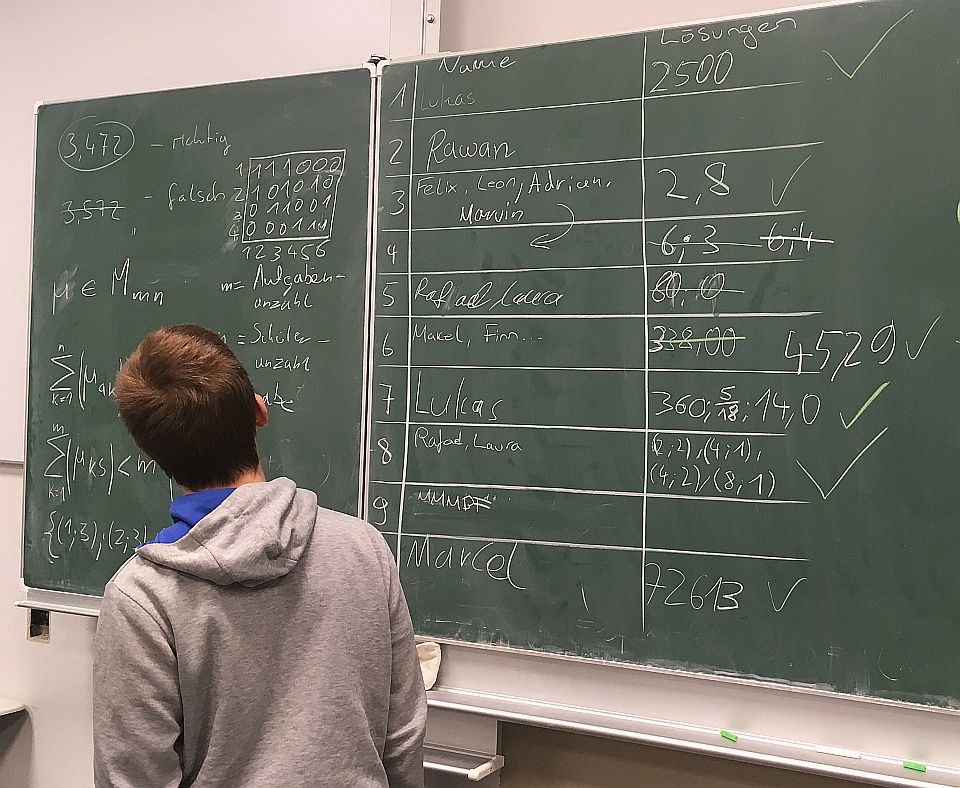 3,472 – richtig
3,572 – falsch
1 111000
2 101010
3 011001
4 000111
1 2 3 4 5 6
m= Aufgaben-
anzahl
μ ∈ M
= Schüler-
anzahl
n
∑
k=1
m
∑ (μks) < m
k=1
{(1;3);(2;3)
Name Lösungen
1 Lukas 2500 ✓
2 Rawan
3 Felix, Leon, Adrian, 2,8 ✓
Marvin
4 6;3
5 Rafael Laura
6 Finn... 338,00 4529 ✓
7 Lukas 360; 5/18; 14,0 ✓
8 Rafael, Laura (2;2),(4;1), ✓
(4;2),(8;1)
9
Marcel 72613 ✓